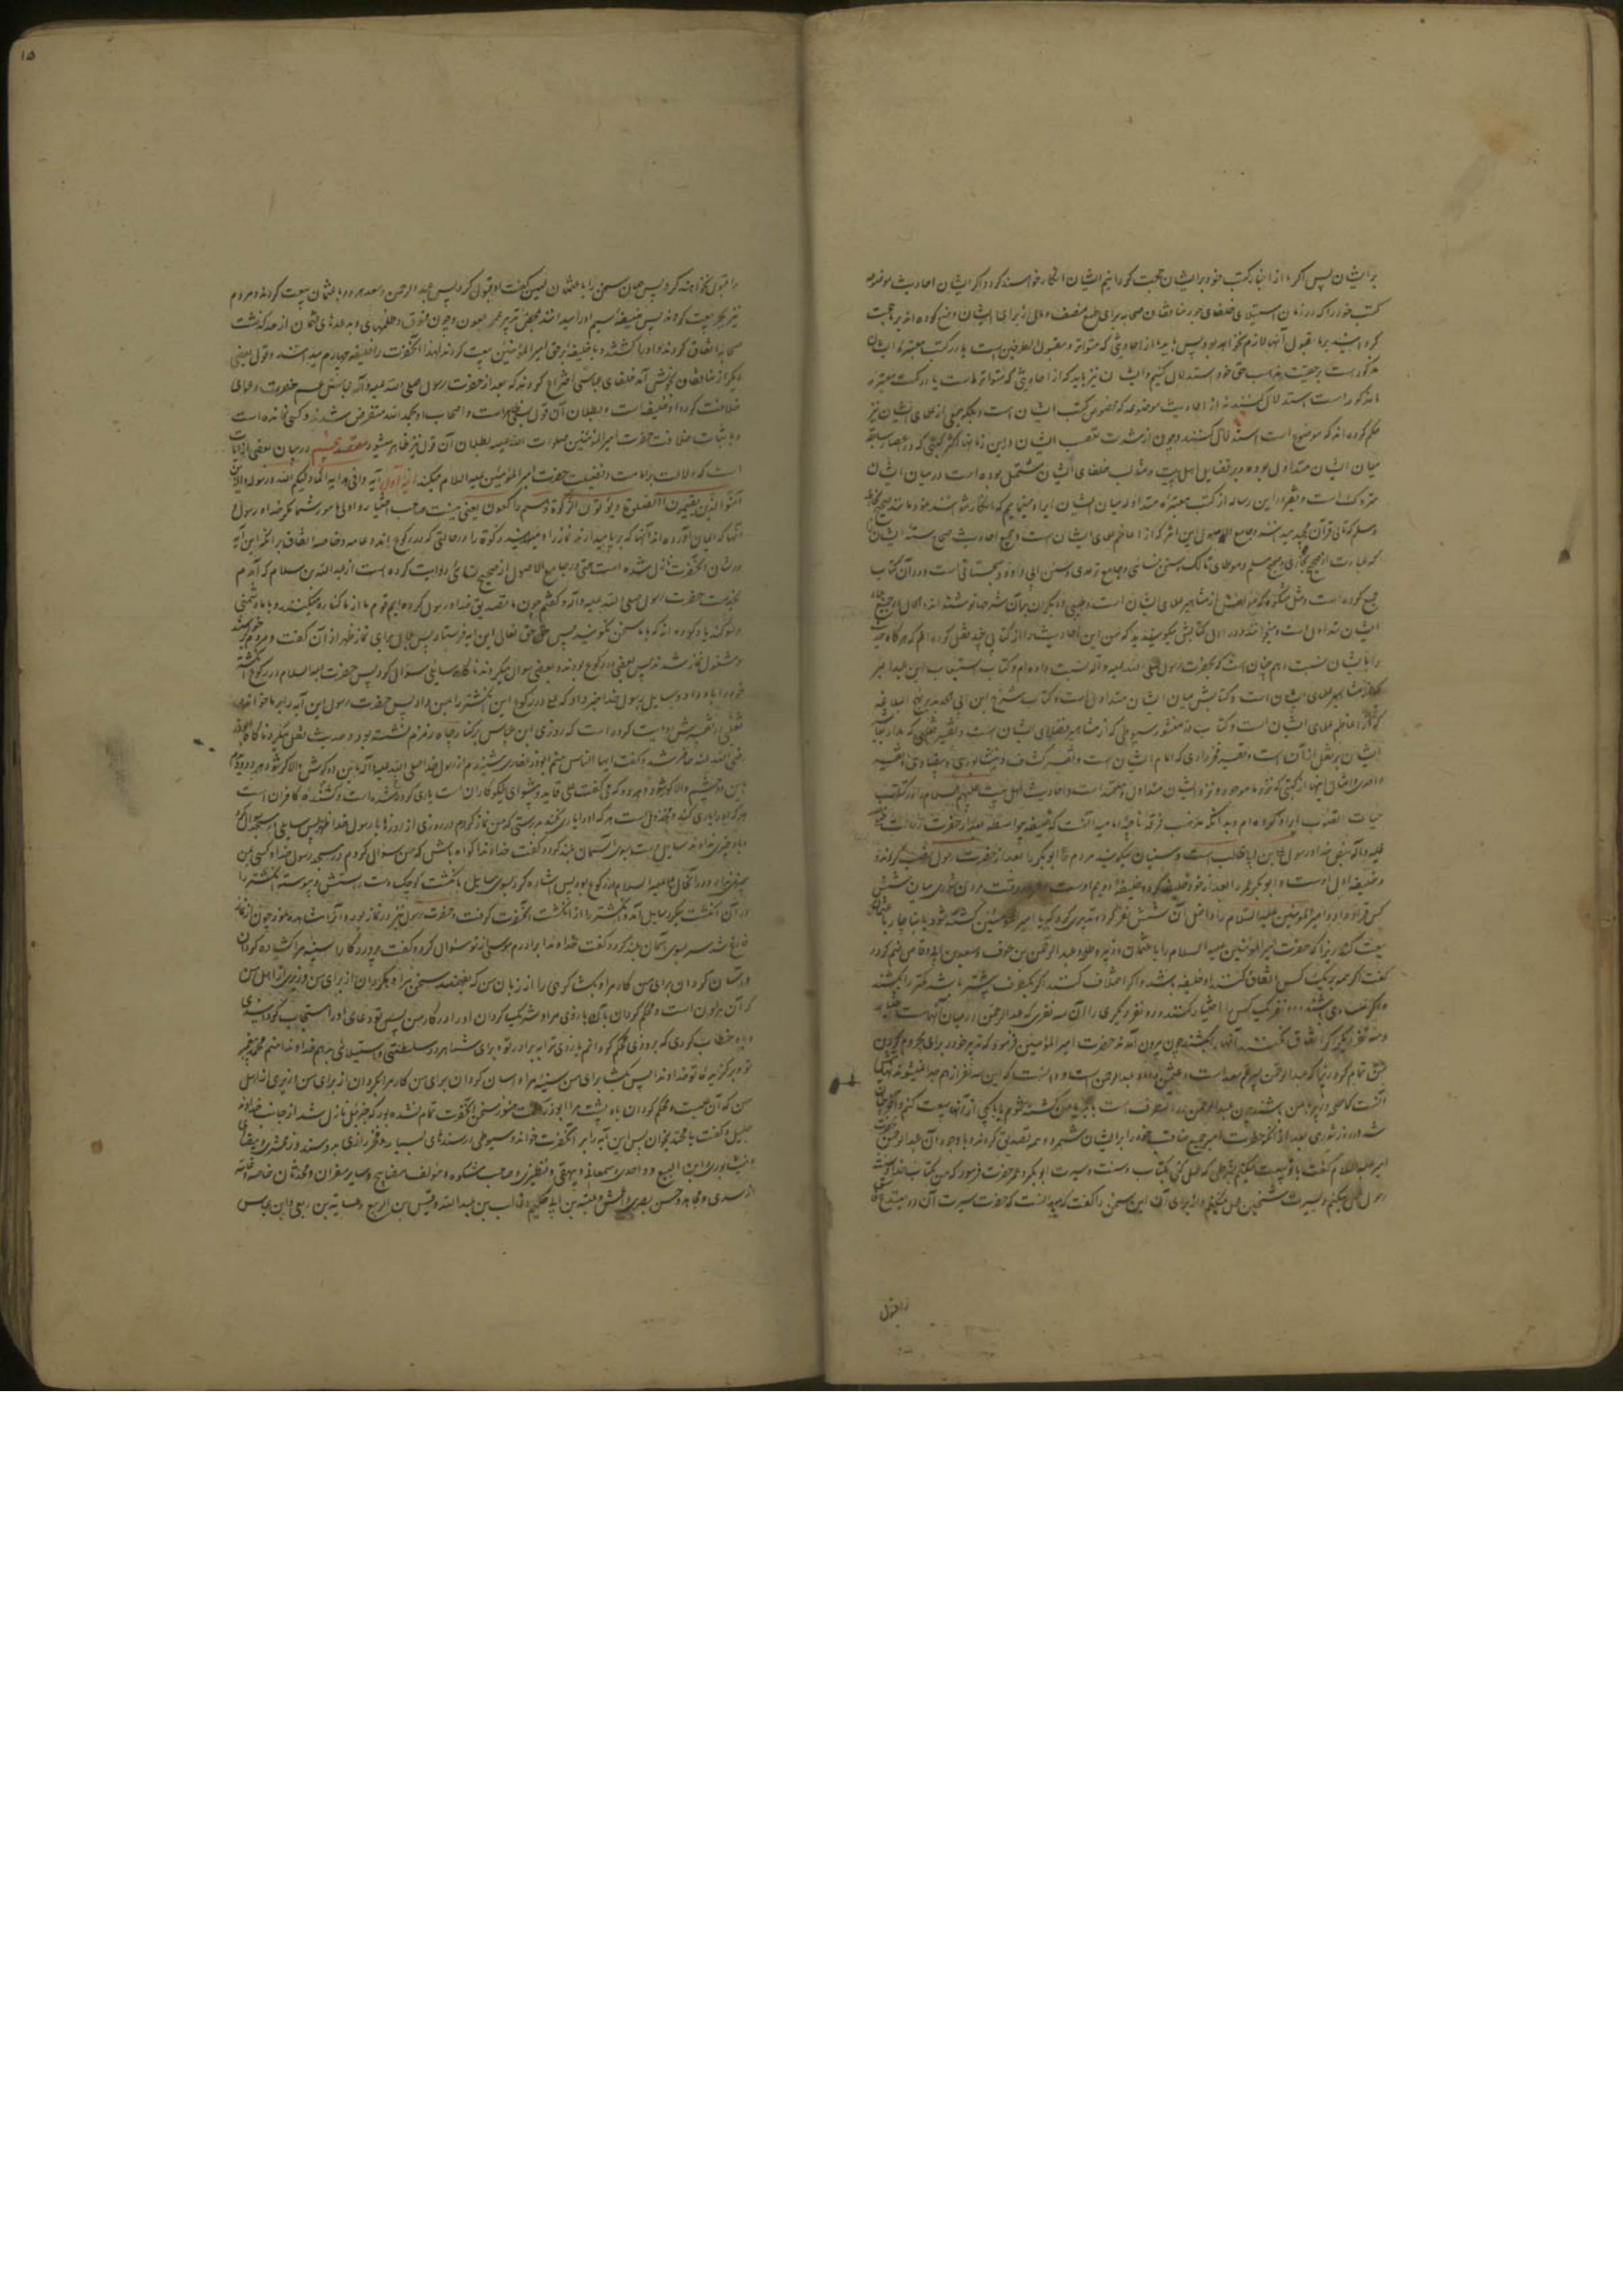 بر ایشان پس اگر ما از اخبار کتب خود بر ایشان حجت گردانیم ایشان انکار خواهند کرد و اگر ایشان احادیث موضوعه
کتب خود را که در زمان استیلای خلفای جور منافقان صحابه برای طمع منصب و مال از برای ایشان وضع کرده اند بر ما حجت
کردانند بر ما قبول آنها لازم نخواهد بود پس باید ما از احادیثی که متواتر و مقبول الطرفین است یا در کتب معتبره ایشان
مذکور است بر حقیت مذهب حق خود استدلال کنیم و ایشان نیز باید که از احادیثی که متواتر ماست یا در کتب معتبره
ما مذکور است استدلال کنند نه از احادیث موضوعه که مخصوص کتب ایشان است و بلکه جمعی از علمای ایشان نیز
حکم کرده اند که موضوع است استدلال کنند و چون از شدت تعصب ایشان در این زمانها اکثر کتبی که در اعصار سابقه
میان ایشان متداول بوده و بر فضایل اهل بیت و مثالب خلفای ایشان مشتمل بوده است در میان ایشان
متروک است و فقیر در این رساله از کتب معتبره متداوله میان ایشان ایراد مینمایم که انکار نتوانند نمود مانند صحیح بخاری
و مسلم که ثانی قرآن مجید میدانند و جامع الاصول ابن اثیر که از اعاظم علمای ایشان است و جمیع احادیث صحاح سته ایشان را
که عبارت از صحیح بخاری و صحیح مسلم و موطای مالک و سنن نسائی و جامع ترمدی و سنن ابی داود سجستانی است در آن کتاب
جمع کرده است و مثل مشکوة که مؤلفش از مشاهیر علمای ایشان است و طیبی و دیگران بر آن شرحها نوشته اند و الحال در جمیع بلاد
ایشان متداول است و میخوانند و در اول کتابش میگوید که من این احادیث را از کتابی چند نقل کرده ام که هر گاه حدیث
را بایشان نسبت دهم چنان است که بحضرت رسول صلی الله علیه و آله نسبت داده ام و کتاب استیعاب ابن عبد البر
که از مشاهیر علمای ایشان است و کتابش میان ایشان متداول است و کتاب شرح ابن ابی الحدید بر نهج البلاغه
که از اعاظم علمای ایشان است و کتاب در منثور سیوطی که از مشاهیر فضلای ایشان است و تفسیر ثعلبی که مدار
ایشان بر نقل از آن است و تفسیر فخر رازی که امام ایشان است و تفسیر کشاف و نیشابوری و بیضاوی و تفسیر
واحدی و امثال اینها از کتبی که نزد ما موجود و نزد ایشان متداول و معتمد است و احادیث اهل بیت علیهم السلام را در کتاب
حیات القلوب ایراد کرده ام و بدانکه مذهب فرقه ناجیه امامیه آنست که خلیفه بیواسطه بعد از حضرت رسالت
علیه و آله بنص خدا و رسول علی بن ابیطالب است و سنیان میگویند مردم با ابو بکر بعد از حضرت رسول بیعت کردند
و خلیفه اول اوست و ابو بکر عمر را بعد از خود خلیفه کرد و خلیفه دویم اوست و عمر در وقت مردن شوری میان شش
کس قرار داد و امیر المؤمنین علیه السلام را داخل آن شش نفر کرد و تدبیری کرد که یا امیر المؤمنین کشته شود یا بناچار با عثمان
بیعت کند زیرا که حضرت امیر المؤمنین علیه السلام را با عثمان و زبیر و طلحه و عبد الرحمن بن عوف و سعد بن ابی وقاص ضم کرد و
گفت اگر همه بر یک کس اتفاق کنند او خلیفه باشد و اگر اختلاف کنند اگر یکطرف بیشتر باشد کمتر را بکشند
و اگر مساوی باشند سه نفر یک کس را اختیار کنند و سه نفر دیگری را آن سه نفری که عبد الرحمن در میان آنهاست
و سه نفر دیگر اگر اتفاق نکنند آنها را بکشند چون بیرون آمدند حضرت امیر المؤمنین فرمود که تدبیر خود را برای محروم کردن
من از حق تمام کرد زیرا که عبد الرحمن پسر عم سعد است و عثمن داماد عبد الرحمن است و دانست که این سه نفر از هم جدا نمیشوند
آنست که طلحه و زبیر با من باشند چون عبد الرحمن در آنطرف است باید یا من کشته شوم یا با یکی از آنها بیعت کنم و آخر چنان
شد و در روز شوری بعد از آنکه حضرت امیر جمیع مناقب خود را بر ایشان شمرد و همه تصدیق کردند با وجود آن عبد الرحمن
امیر علیه السلام گفت با تو بیعت میکنم بشرطی که عمل کنی بکتاب و سنت و سیرت ابو بکر و عمر حضرت فرمود که من بکتاب خدا و سنت
رسول عمل میکنم و بسیرت شیخین عمل نمیکنم و از برای آن این سخن را گفت که میدانست که حضرت سیرت آن دو
را قبول
۱۵
را قبول نخواهد کرد پس همان سخن را با عثمان لعین گفت او قبول کرد پس عبد الرحمن و سعد هر دو با عثمان بیعت کردند و مردم
نیز بجبر بیعت کردند پس خلیفه سیم او را میدانند بمحض تدبیر عمر ملعون و چون فسوق و ظلمهای و بدعتهای عثمان از حد گذشت
صحابه اتفاق کردند و او را کشتند و با خلیفه برحق امیر المؤمنین بیعت کردند لهذا آنحضرت را خلیفه چهارم میدانند و قول بعضی
دیگر از منافقان بخوش آمد خلفای عباسی اختراع کردند که بعد از حضرت رسول صلی الله علیه و آله عباس عم حضرت دعوای
خلافت کرد و او خلیفه است و بطلان آن قول ظاهر است و اصحاب او بحمد الله منقرض شدند و کسی نمانده است
و باثبات خلافت حضرت امیر المؤمنین صلوات الله علیه بطلان آن قول نیز ظاهر میشود مقصد پنجم در بیان بعضی از آیات
است که دلالت بر امامت و فضیلت حضرت امیر المؤمنین علیه السلام میکند آیه اول آیه وافی هدایه انما ولیکم الله و رسوله و الذین
آمنوا الذین یقیمون الصلوة و یؤتون الزکوة و هم راکعون یعنی نیست صاحب اختیار و اولی بامور شما مگر خدا و رسول او
آنها که ایمان آورده اند آنها که بر پا میدارند نماز را و میدهند زکوة را در حالتی که در رکوع اند و عامه و خاصه اتفاق بر آنکه این آیه
در شان آنحضرت نازل شده است حتی در جامع الاصول از صحیح نسائی روایت کرده است از عبد الله بن سلام که آمدم
بخدمت حضرت رسول صلی الله علیه و آله و گفتم چون ما تصدیق خدا و رسول کرده ایم قوم ما از ما کناره میکنند و با ما دشمنی
و سوگند یاد کرده اند که با ما سخن نگویند پس حق تعالی این آیه فرستاد پس بلال برای نماز ظهر اذان گفت و مردم برخاستند
و مشغول نماز شدند پس بعضی در رکوع بودند و بعضی سوال میکردند ناگاه سایلی سؤال کرد پس حضرت علیه السلام در رکوع انگشتر
خود را باو داد و سایل رسول خدا خبر داد که علی در رکوع این انگشتر را بمن داد پس حضرت رسول این آیه را بر ما خواند
ثعلبی در تفسیرش روایت کرده است که روزی ابن عباس بر کنار چاه زمزم نشسته بود و حدیث نقل میکرد ناگاه ابوذر
رضی الله عنه حاضر شد و گفت ایها الناس منم ابوذر غفاری شنیدم از رسول خدا صلی الله علیه و آله باین دو گوش والا کر شود هر دو و دیدم
باین دو چشم والا کور شود هر دو که می گفت علی قاید و پیشوای نیکوکاران است و کشنده کافران است
هر که او را یاری کند و مخذول است هر که او را یاری نکند بدرستی که من نماز کردم در روزی از روزها با رسول خدا ظهر پس سایلی در مسجد سؤال کرد
و باو چیزی ندادند سایل دست بسوی آسمان بلند کرد و گفت خداوندا گواه باش که من سوال کردم در مسجد رسول خدا و کسی بمن
چیزی نداد و در آنحال علی علیه السلام در رکوع بود پس اشاره کرد بسوی سایل بانگشت کوچک دست راستش و پیوسته انگشتر را
در آن انگشت میکرد سایل آمد و انگشتر را از انگشت آنحضرت گرفت و حضرت رسول نیز در نماز بود و آنرا مشاهده نمود چون از نماز
فارغ شد سر بسوی آسمان بلند کرد و گفت خداوندا برادرم موسی از تو سئوال کرد و گفت پروردگارا سینه مرا گشاده گردان
و آسان گردان برای من کار مرا و بگشا گرهی را از زبان من که بفهمند سخن مرا و بگردان از برای من وزیری از اهل من
که آن هرون است و محکم گردان باو بازوی مرا و شریک گردان او را در کار من پس تو دعای او را مستجاب گردانیدی
و باو خطاب کردی که بزودی محکم گردانم بازوی ترا به برادر تو و برای شما هر دو سلطنتی و استیلائی بدهم خداوندا منم محمد پیغمبر
تو و برگزیده تو خداوندا پس بگشا برای من سینه مرا و آسان گردان برای من کار مرا و بگردان از برای من وزیری از اهل
من که آن علیست و محکم گردان باو پشت مرا ابوذر گفت هنوز سخن آنحضرت تمام نشده بود که جبرئیل نازل شد از جانب خداوند
جلیل و گفت یا محمد بخوان پس این آیه را بر آنحضرت خواند و سیوطی در سندهای بسیار و فخر رازی بدو سند و زمخشری و بیضاوی
و نیشابوری و ابن البیع و واحدی و سمعانی و بیهقی و نطنزی و صاحب مشکوة و مؤلف مصابیح و سایر مفسران و محدثان خاصه و عامه
از سدی و مجاهد و حسن بصری و اعمش و عتبه بن ابی حکیم و غالب بن عبد الله و قیس بن الربیع و عبایه بن ربعی و ابن عباس